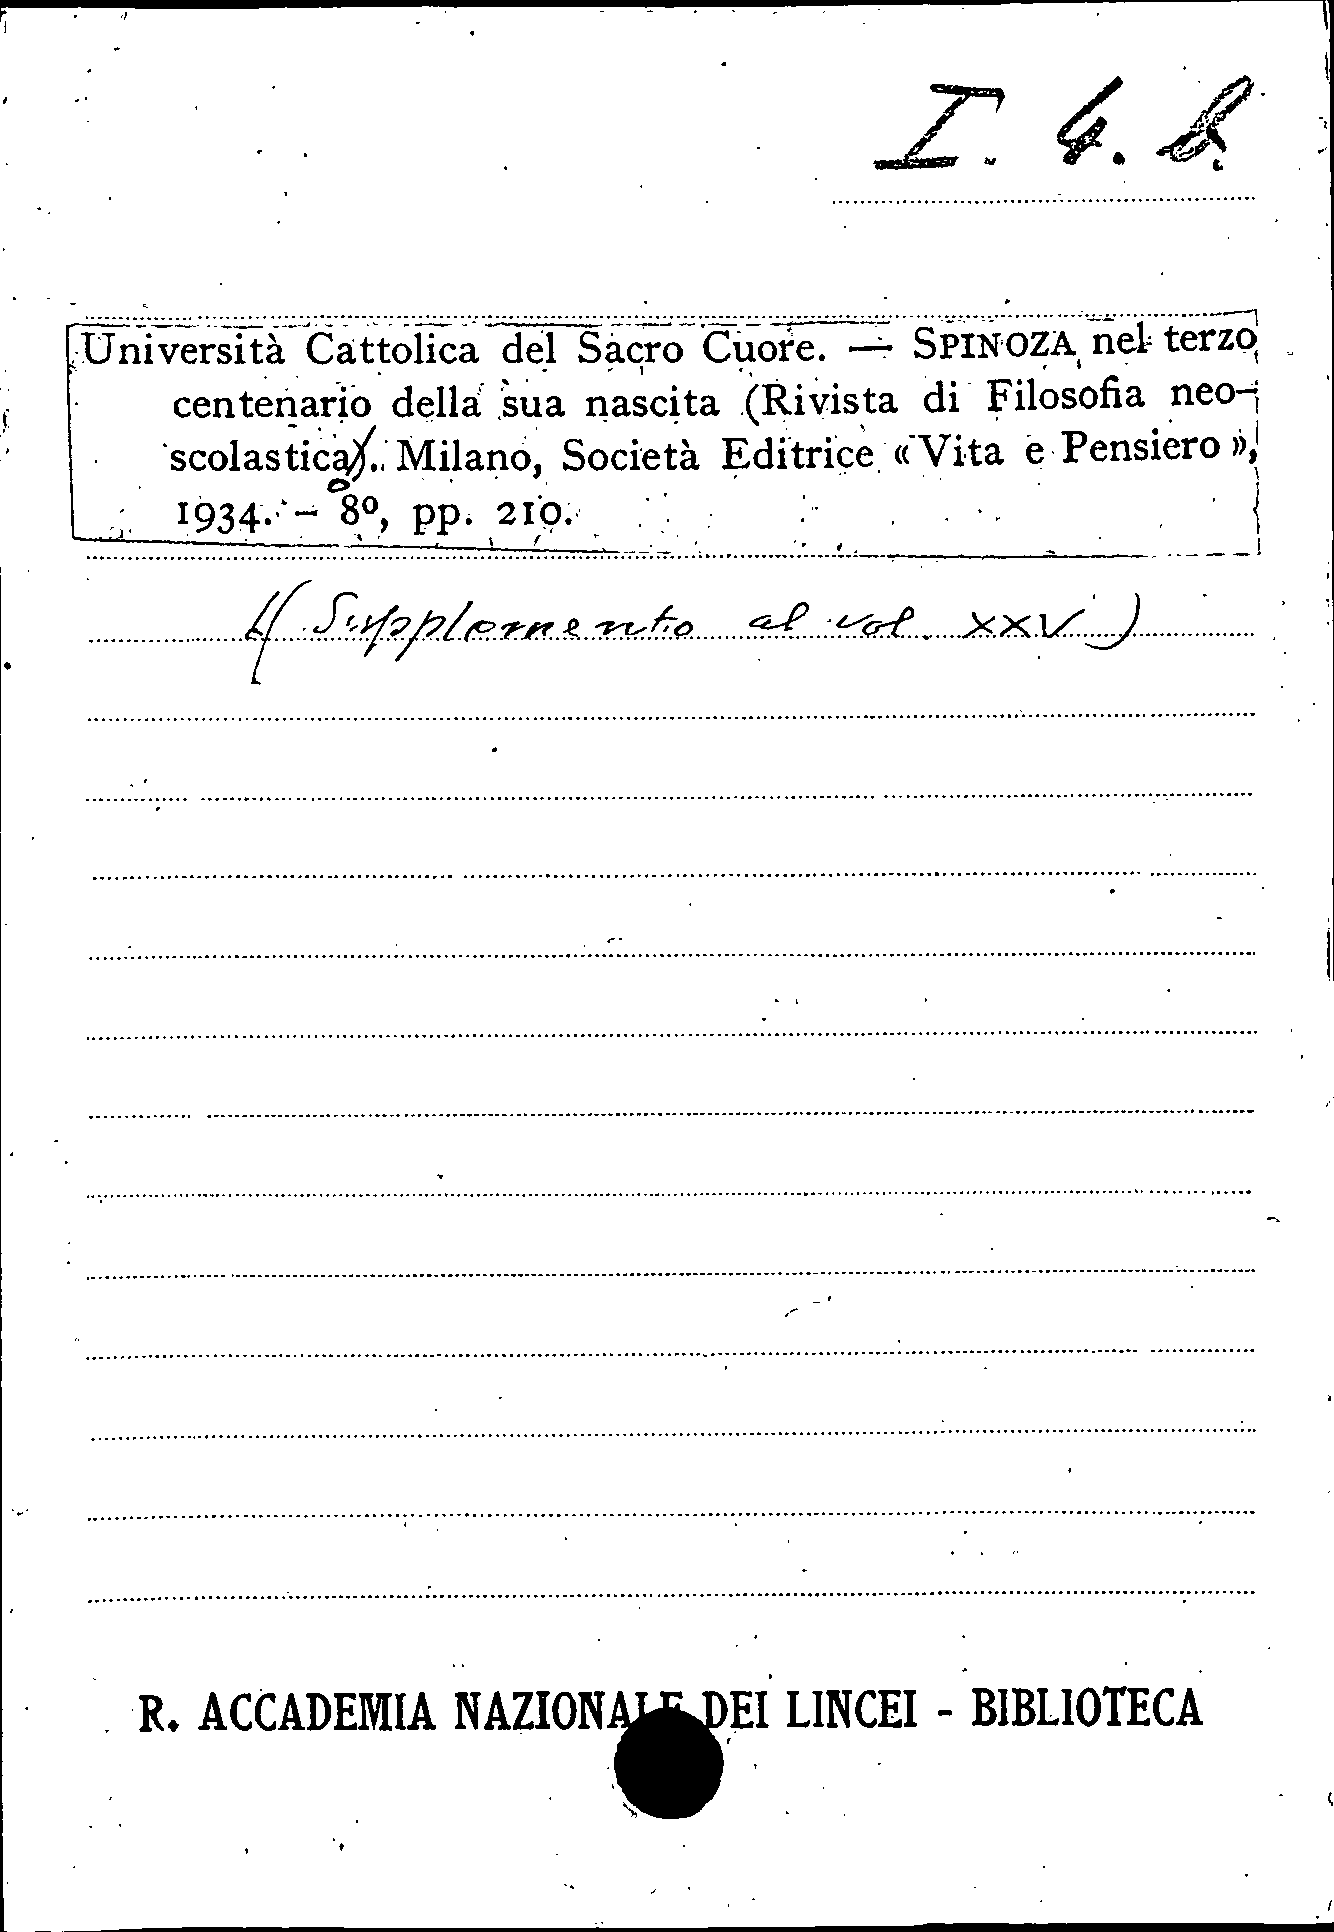 I. 4. 8.
Università Cattolica del Sacro Cuore. — SPINOZA nel terzo
centenario della sua nascita (Rivista di Filosofia neo-
scolastica). Milano, Società Editrice « Vita e Pensiero »,
1934. - 8º, pp. 210.
(Supplemento al vol. XXV)
R. ACCADEMIA NAZIONALE DEI LINCEI - BIBLIOTECA